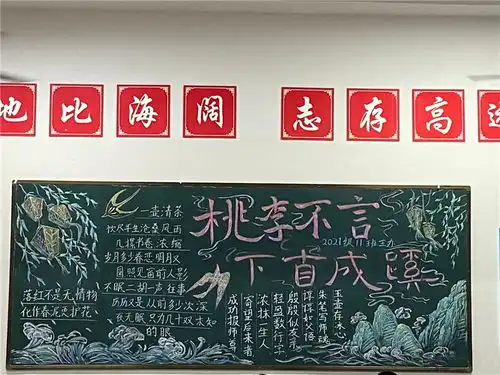 地比海阔 志存高远
桃李不言
下自成蹊
2021级11班
一壶清茶
饮尽半生沧桑风雨
几摞书卷 浓缩
岁月多少春悲明月
圆照见窗前人影
不眠二胡一声往事
历历是从前多少次深
夜无眠 只为几十双求知
的眼
落红不是无情物
化作春泥更护花
玉壶存冰心
朱笔写师魂
谆谆如父语
殷殷似友亲
轻盈数行字
浓抹一生人
寄望后来者
成功报师尊